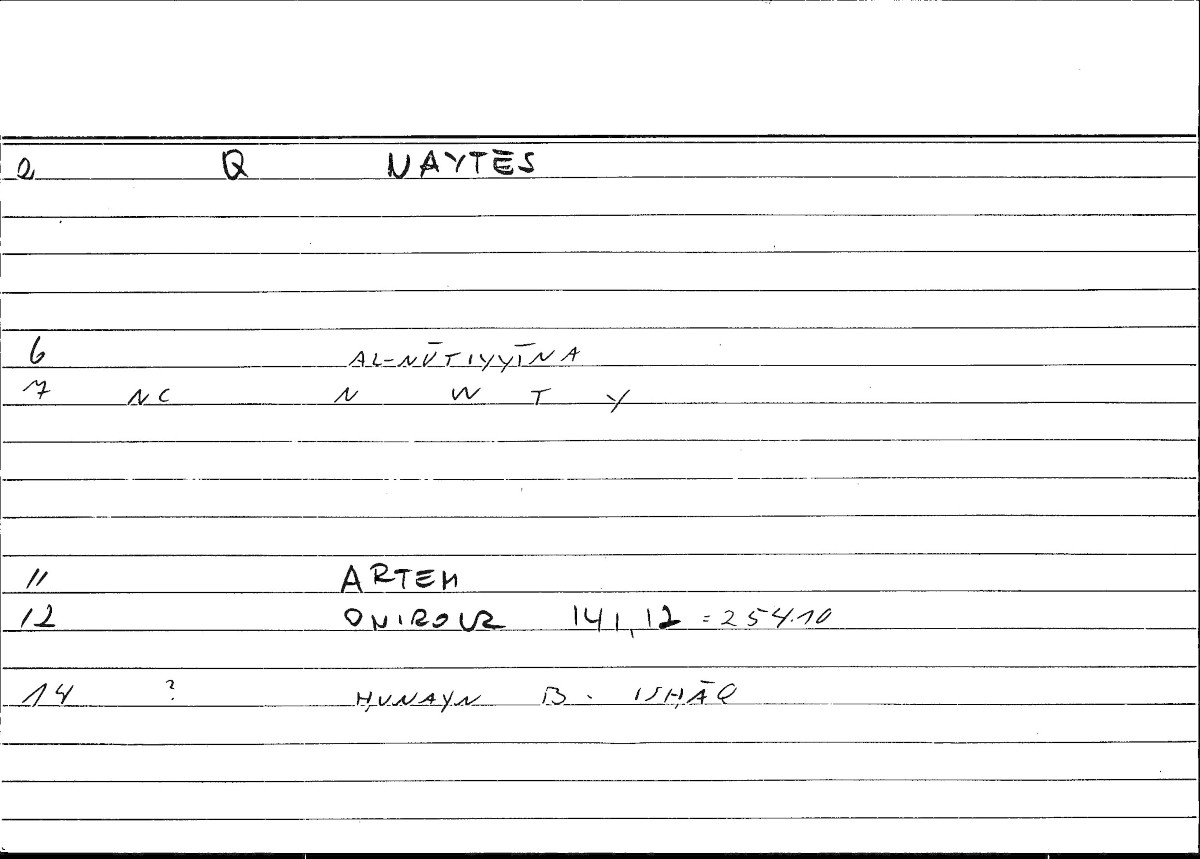 2 Q NAYTĒS
6 AL-NŪTIYYĪNA
7 NC N W T Y
11 ARTEM
12 ONIROCR 141,12 = 254.10
14 ? ḤUNAYN B. ISḤĀQ